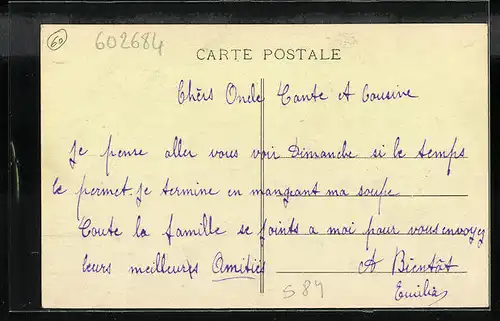 60
602684
CARTE POSTALE
Chèrs Oncle Tante et Cousine
Je pense aller vous voir Dimanche si le temps
le permet. je termine en mangeant ma soupe
Toute la famille se joints a moi pour vous envoyez
leurs meilleures Amitiés
A Bientôt
Emilia
S84